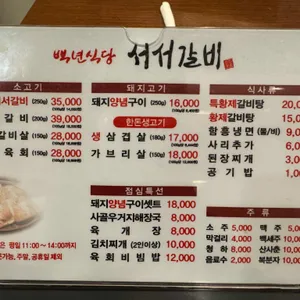 백년식당 서서갈비
소고기
서갈비 (250g) 35,000
갈비 (200g) 39,000
갈비살 (150g) 28,000
육회 (150g) 28,000
돼지고기
돼지양념구이 (250g) 16,000
한돈생고기
생삼겹살 (180g) 17,000
가브리살 (150g) 18,000
점심특선
돼지양념구이셋트 18,000
사골우거지해장국 8,000
육개장 8,000
김치찌개 (2인이상) 10,000
육회비빔밥 12,000
은 평일 11:00 ~ 14:00까지
가능, 주말, 공휴일 제외
식사류
특황제갈비탕 20,0
황제갈비탕 15,0
함흥냉면 (물/비) 9,0
사리추가
된장찌개
공기밥
주류
소주 5,000 맥주
막걸리 4,000 백세주
청하 8,000 산사춘
음료수 2,000 복분자